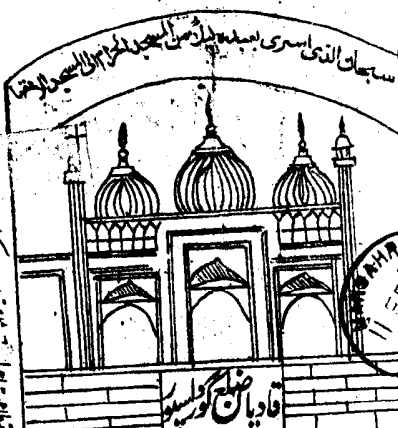 سبحان الذی اسری بعبده لیلا من المسجد الحرام الی المسجد الاقصا
قادیاں ضلع گورداسپور